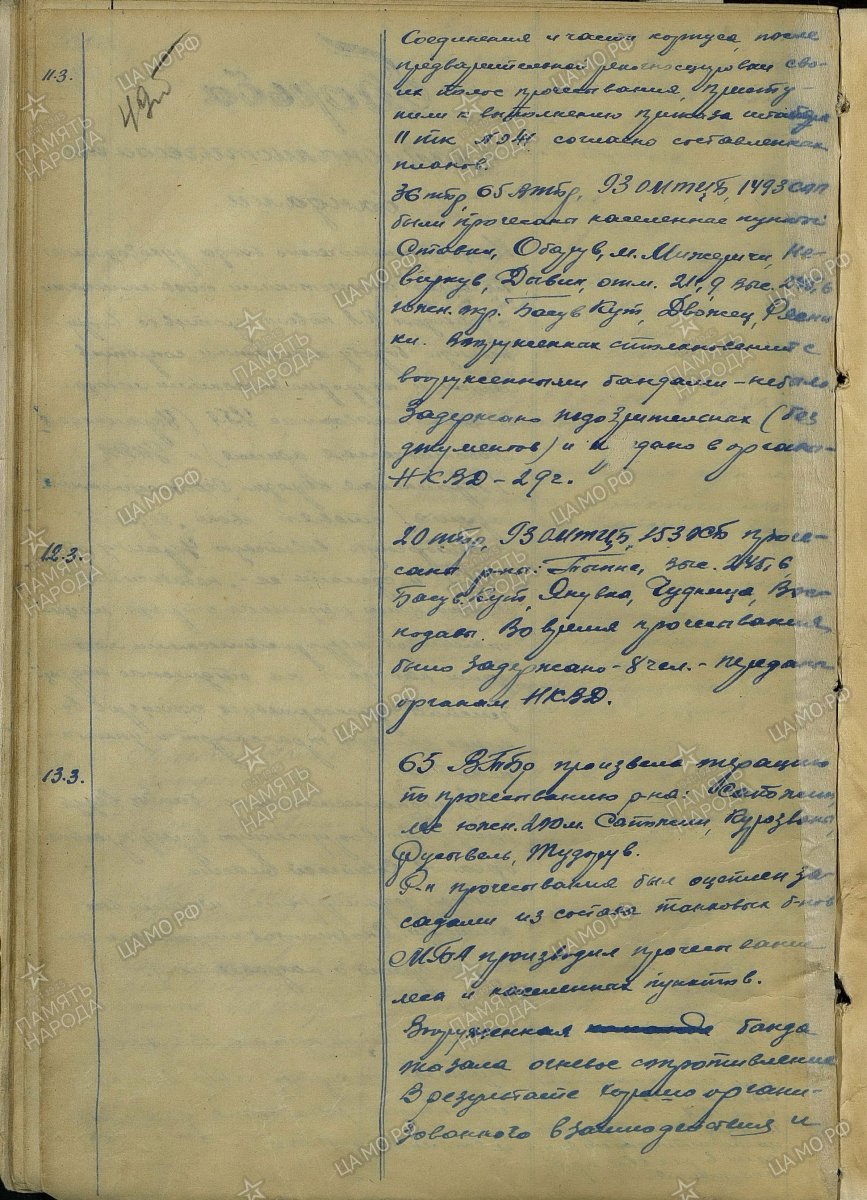 435
11.3.
Соединения и части корпуса, после
предварительной рекогносцировки сво-
их полос прочесывания, присту-
пили к выполнению приказа штаба
11 тк согласно составленных
планов.
36 тбр, 65 втбр, 93 1493 сап
были прочесаны населенные пункты
Ставки, Обарув, м. Межеричи, Не-
виркув, Дывин, отм. выс.
южн. окр. Басув Кут, Двожец, Ресни-
ки. Вооруженных столкновений с
вооруженными бандами – не было
Задержано подозрительных (без
документов) и дано в органы
НКВД – 29 ч.
12.3.
20 тбр, 93 153 прочe-
саны р-ны: Тынне, выс.
Басув Кут, Янувка, Чудница,
Во время прочесывания
было задержано – 8 чел. – переданы
органам НКВД.
13.3.
65 ВТБр произвела операцию
по прочесыванию р-на: Сатыев,
лес южн. Сатыев,
Тудорув.
Р-н прочесывания был оцеплен за-
садами из состава танковых б-нов
МБА производил прочесывание
леса и населенных пунктов.
Вооруженная команда банда
оказала огневое сопротивление
В результате хорошо органи-
зованного взаимодействия и
ЦАМО РФ
ПАМЯТЬ
НАРОДА